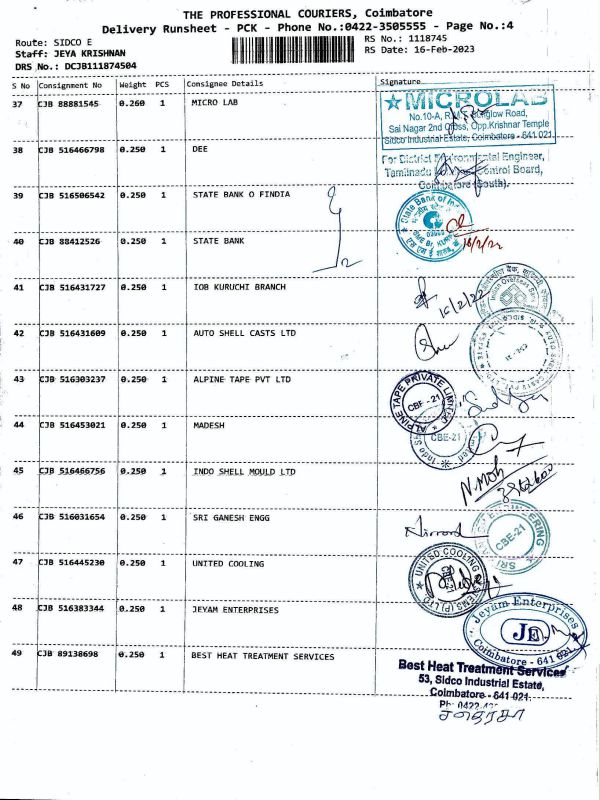 THE PROFESSIONAL COURIERS, Coimbatore
Delivery Runsheet - PCK - Phone No.:0422-3505555 - Page No.:4
Route: SIDCO E
RS No.: 1118745
Staff: JEYA KRISHNAN
RS Date: 16-Feb-2023
DRS No.: DCJB111874504
S No Consignment No Weight PCS Consignee Details Signature
37 CJB 88881545 0.260 1 MICRO LAB
MICROLAB
Sai Nagar 2nd Cross, Opp.Krishnar Temple
Sidco Industrial Estate, Coimbatore - 641 021.
38 CJB 516466798 0.250 1 DEE
For District Environmental Engineer,
Tamilnadu Control Board,
Coimbatore (South).
39 CJB 516506542 0.250 1 STATE BANK O FINDIA
State Bank of India
40 CJB 88412526 0.250 1 STATE BANK
16/2/22
41 CJB 516431727 0.250 1 IOB KURUCHI BRANCH
16/2/22
Indian Overseas Bank
42 CJB 516431609 0.250 1 AUTO SHELL CASTS LTD
43 CJB 516303237 0.250 1 ALPINE TAPE PVT LTD
ALPINE TAPE PRIVATE LIMITED
CBE - 21
44 CJB 516453021 0.250 1 MADESH
CBE-21
45 CJB 516466756 0.250 1 INDO SHELL MOULD LTD
46 CJB 516031654 0.250 1 SRI GANESH ENGG
CBE-21
47 CJB 516445230 0.250 1 UNITED COOLING
UNITED COOLING SYSTEMS (P) LTD
48 CJB 516383344 0.250 1 JEYAM ENTERPRISES
Jeyam Enterprises
JE
Coimbatore - 641 021.
49 CJB 89138698 0.250 1 BEST HEAT TREATMENT SERVICES
Best Heat Treatment Services
53, Sidco Industrial Estate,
Coimbatore - 641 021.